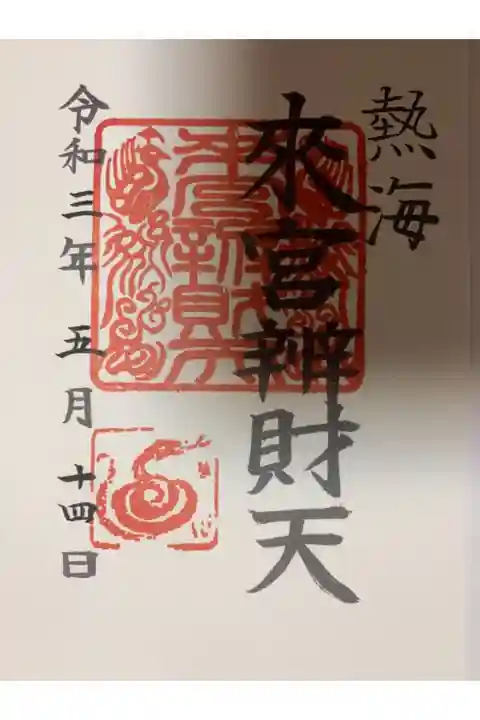 熱海
來宮辨財天
令和三年 五月 十四日